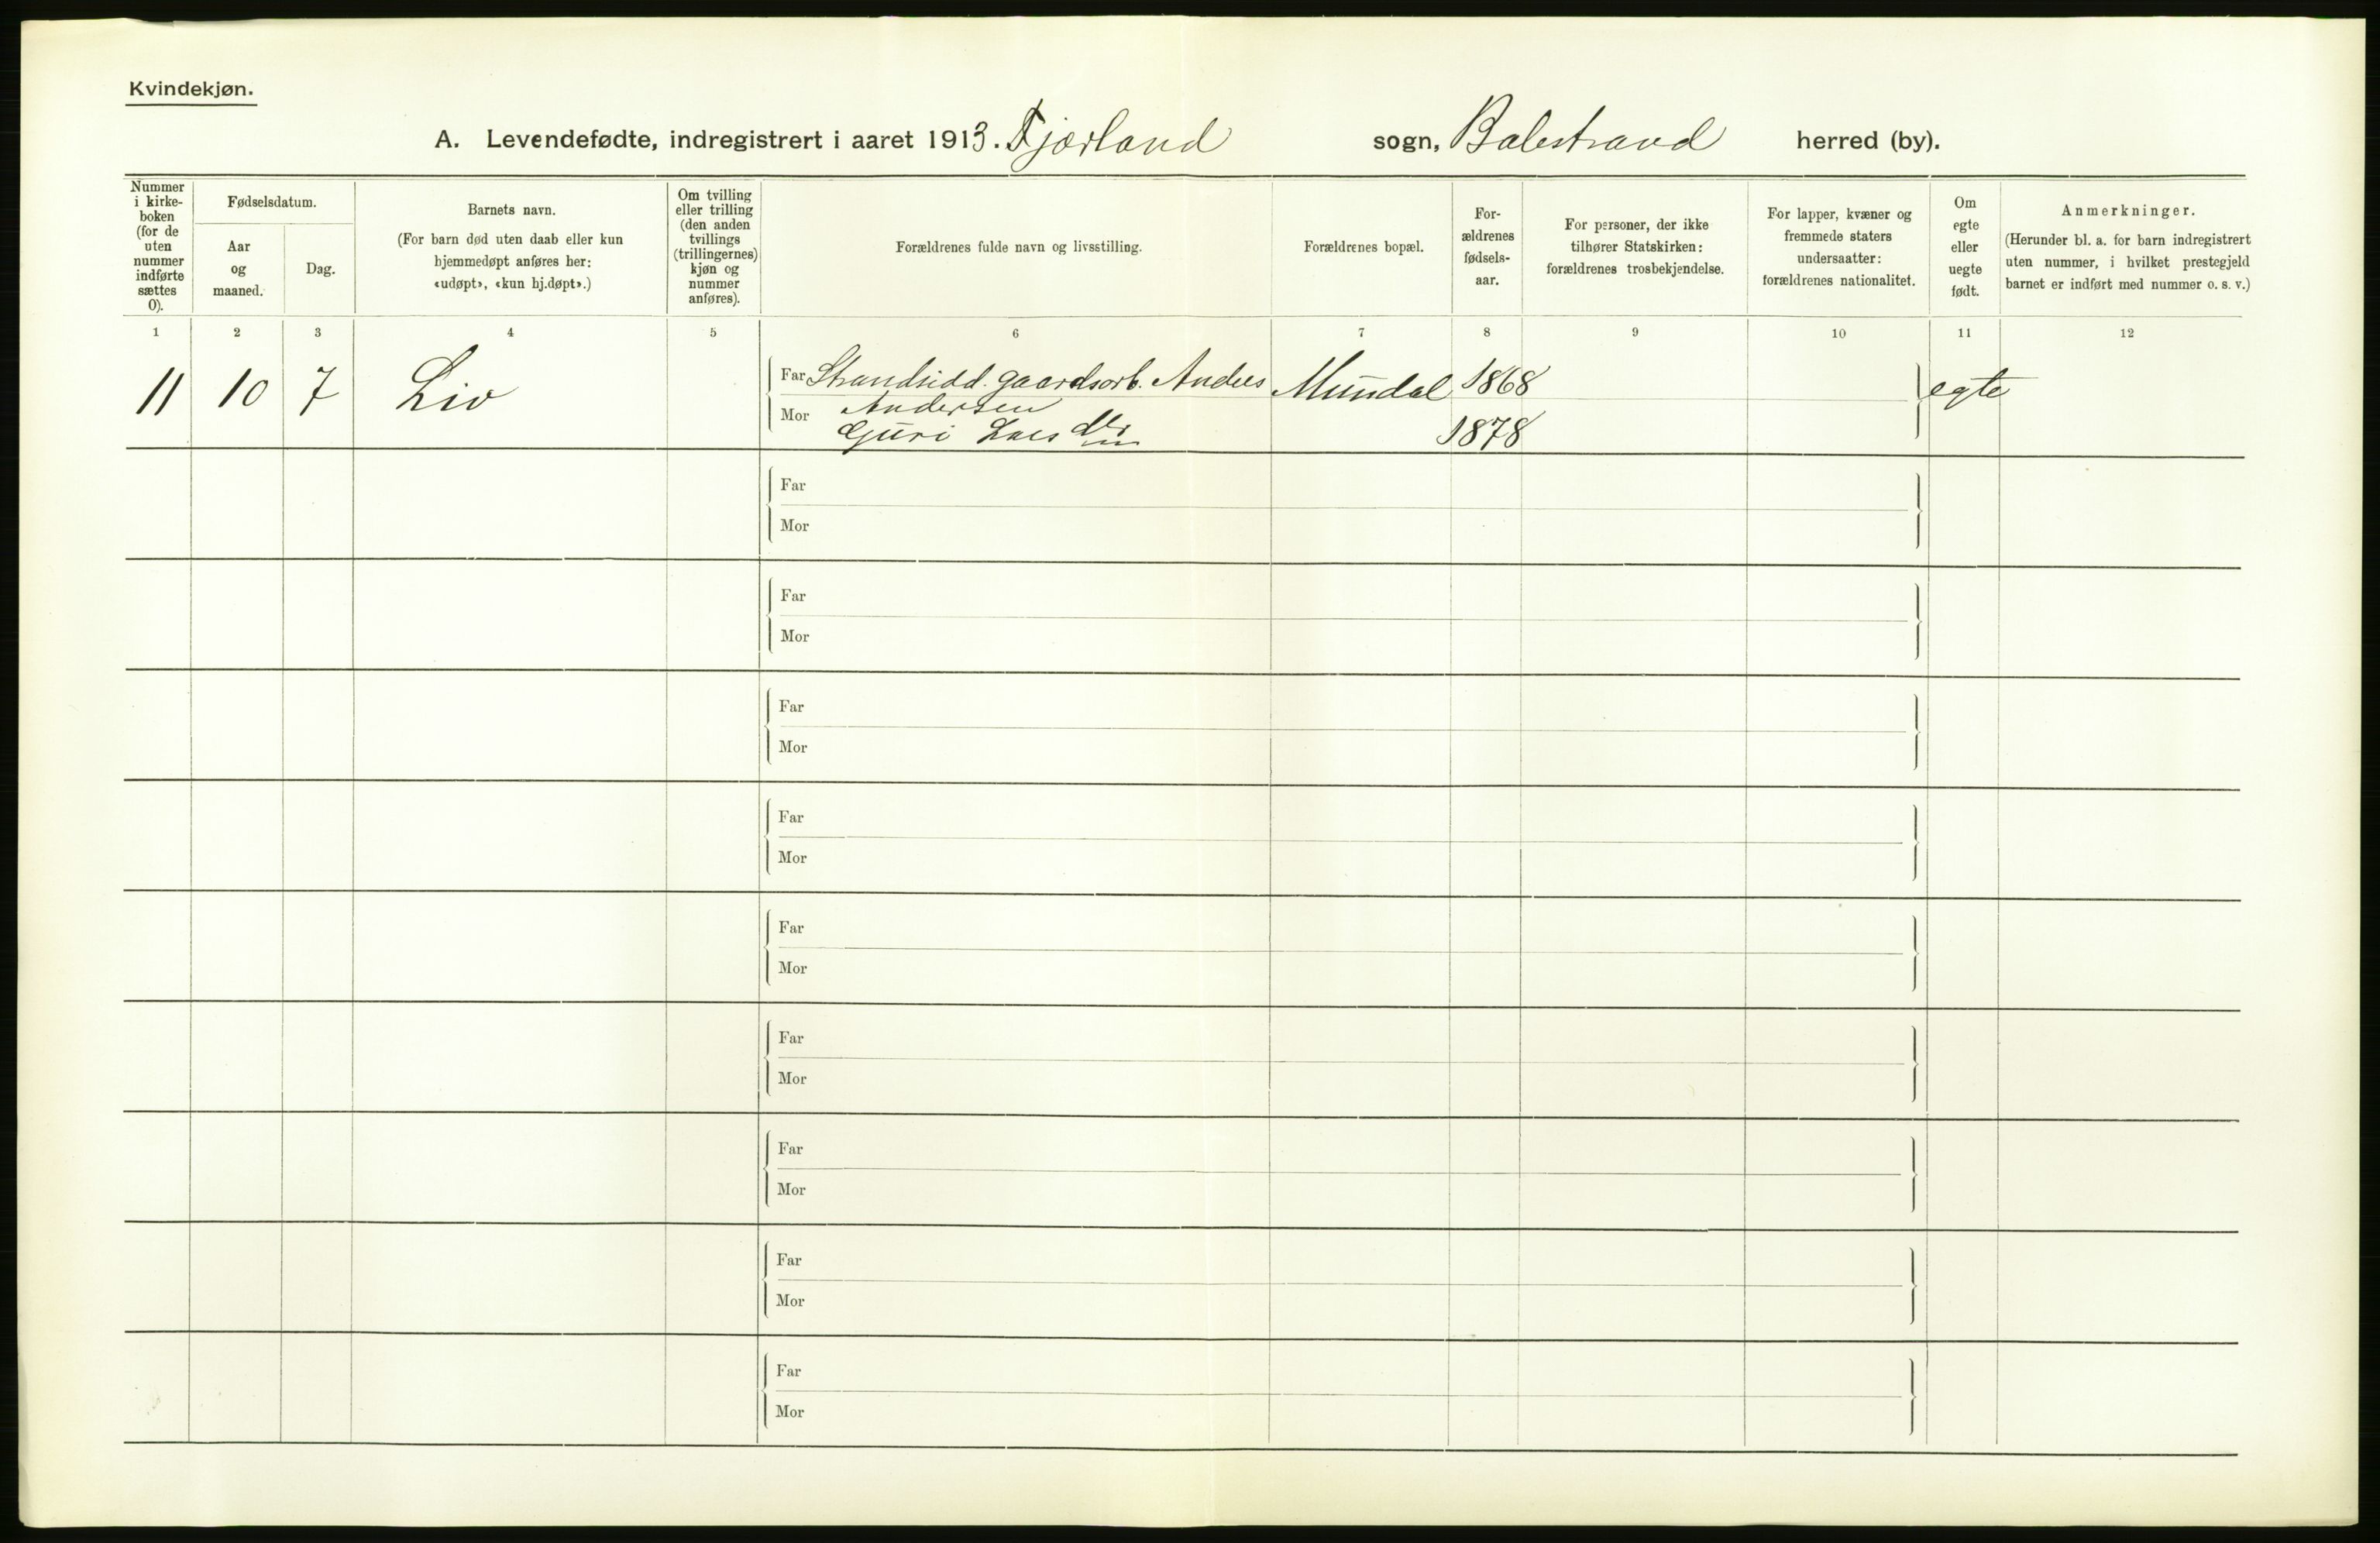 Kvindekjøn.
A. Levendefødte, indregistrert i aaret 1913. Fjærland sogn, Balestrand herred (by).
Nummer i kirke- boken (for de uten nummer indførte sættes 0).
Fødselsdatum.
Aar og maaned.
Dag.
Barnets navn.
(For barn død uten daab eller kun hjemmedøpt anføres her: «udøpt», «kun hj.døpt».)
Om tvilling eller trilling (den anden tvillings (trillingernes) kjøn og nummer anføres).
Forældrenes fulde navn og livsstilling.
Forældrenes bopæl.
For- ældrenes fødsels- aar.
For personer, der ikke tilhører Statskirken: forældrenes trosbekjendelse.
For lapper, kvæner og fremmede staters undersaatter: forældrenes nationalitet.
Om egte eller uegte født.
Anmerkninger.
(Herunder bl. a. for barn indregistrert uten nummer, i hvilket prestegjeld barnet er indført med nummer o. s. v.)
1 2 3 4 5 6 7 8 9 10 11 12
11 10 7 Liv Far Strandsidd. gaardsarb. Anders Mundal 1868 egte
Andersen
Mor Guri Larsdtr 1878
Far
Mor
Far
Mor
Far
Mor
Far
Mor
Far
Mor
Far
Mor
Far
Mor
Far
Mor
Far
Mor